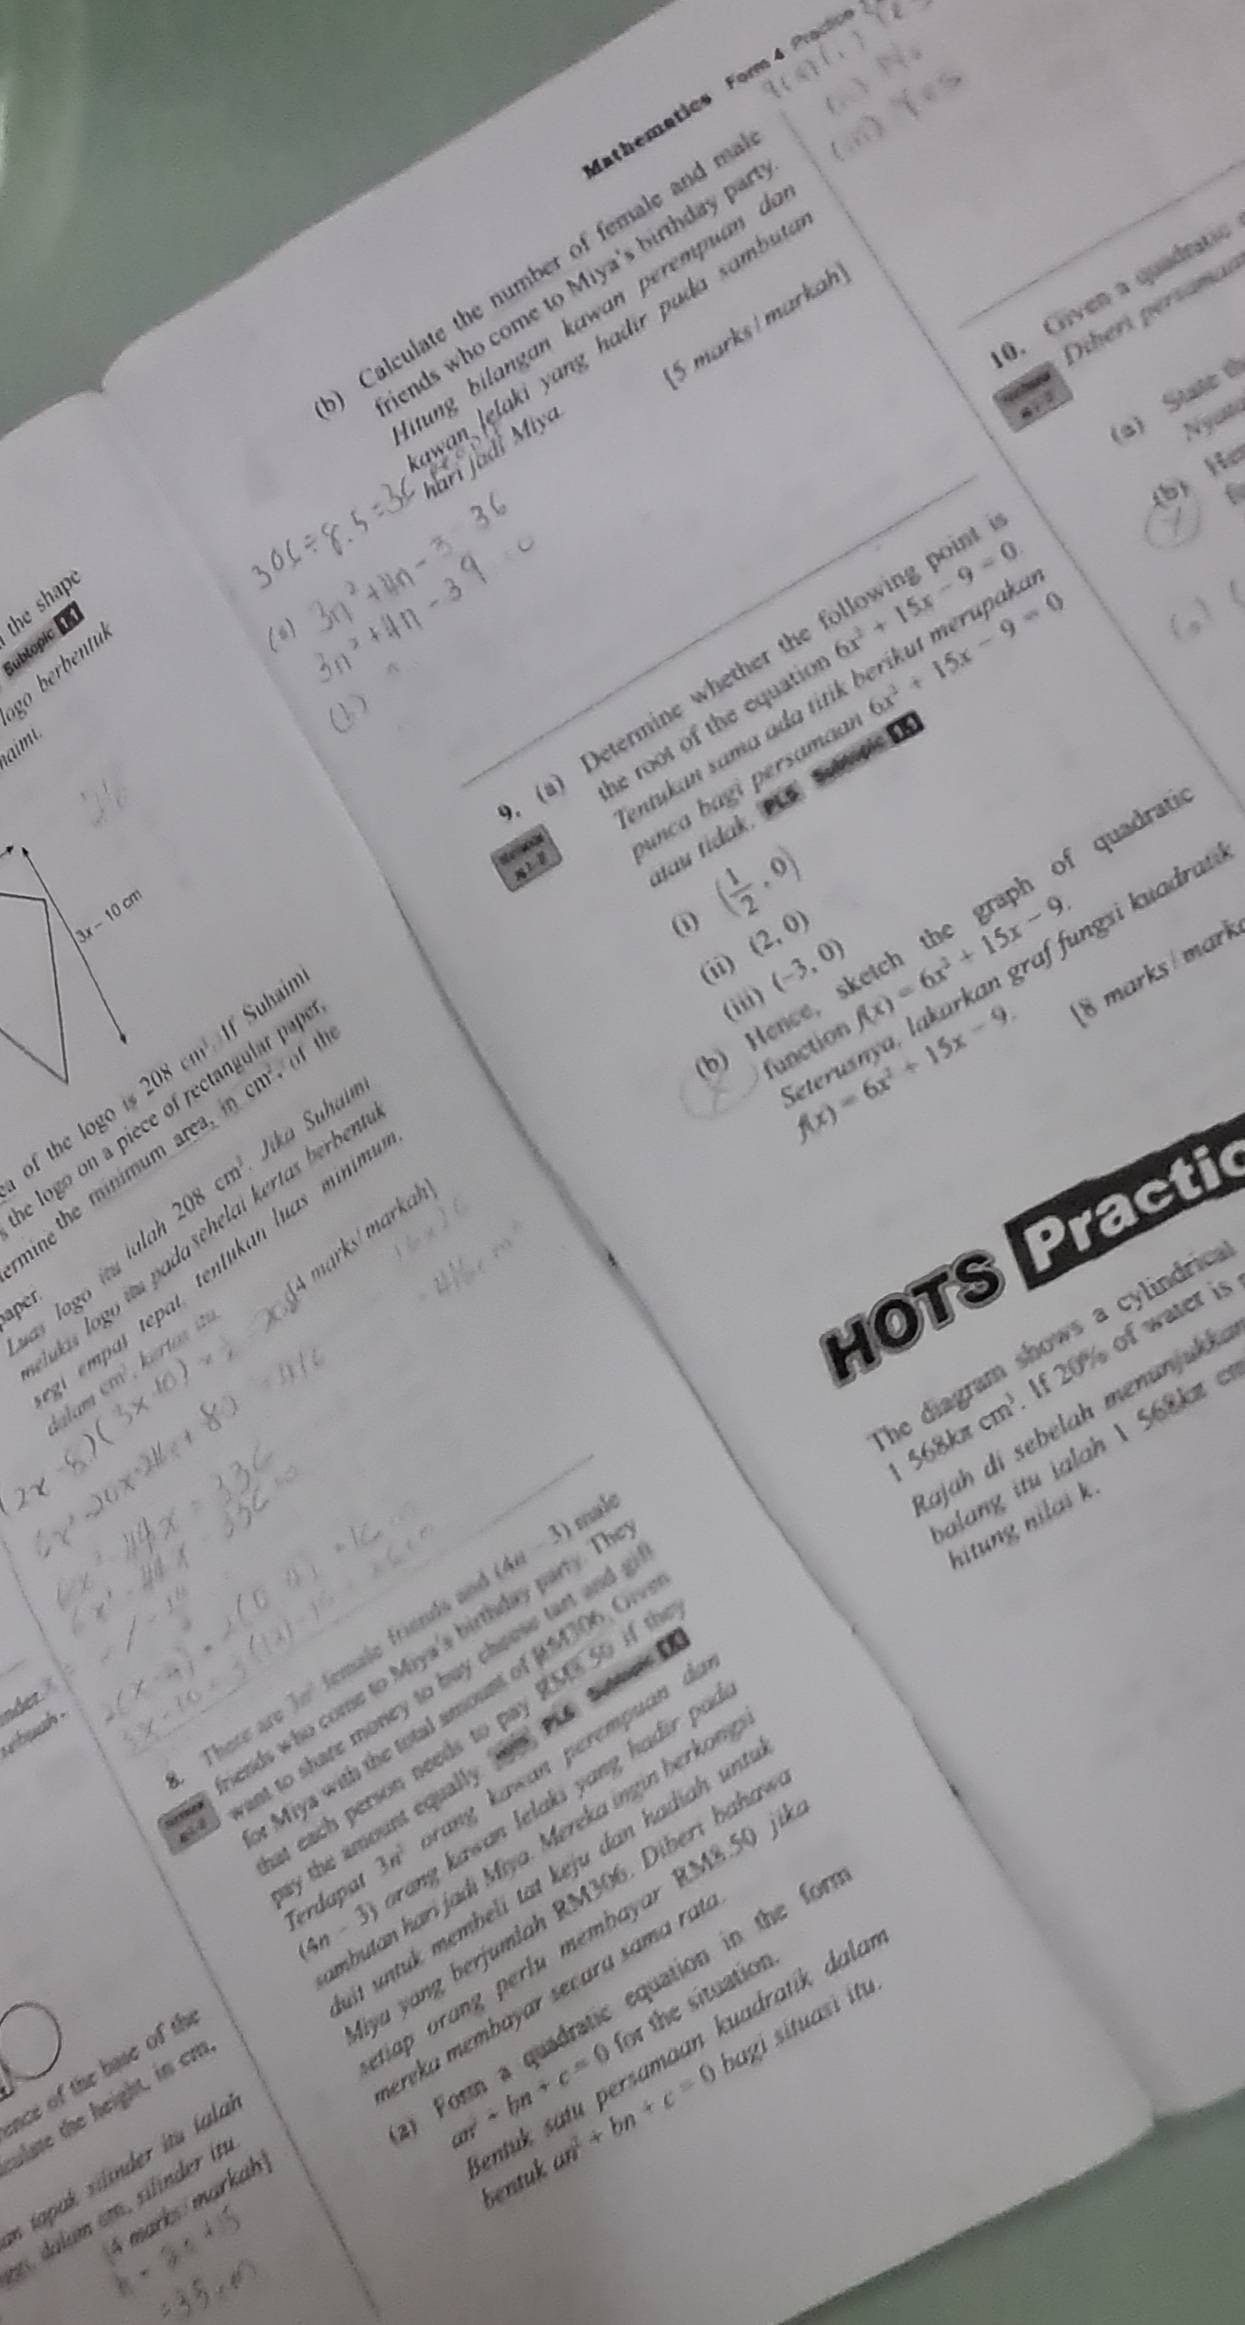 the shape
Subtopic 1.1
logo berbentuk
haimi.
3x – 10 cm
of the logo is 208 cm². If Suhaimi
the logo on a piece of rectangular paper,
ermine the minimum area, in cm², of the
paper.
Luas logo itu ialah 208 cm². Jika Suhaimi
melukis logo itu pada sehelai kertas berbentuk
segi empat tepat, tentukan luas minimum,
dalam cm², kertas itu.
[4 marks/markah]
416cm²
(2x-8)(3x-10) × ½
6x² - 44x - 336 = 0
ence of the base of the
culate the height, in cm,
an tapak silinder itu ialah
dalam cm, silinder itu.
[4 marks/markah]
= 35cm
8. There are 3n² female friends and (4n – 3) male
friends who come to Miya's birthday party. They
want to share money to buy cheese tart and gift
for Miya with the total amount of RM306. Given
that each person needs to pay RM8.50 if they
pay the amount equally. PL5 Subtopic 1.1
Terdapat 3n² orang kawan perempuan dan
(4n – 3) orang kawan lelaki yang hadir pada
sambutan hari jadi Miya. Mereka ingin berkongsi
duit untuk membeli tat keju dan hadiah untuk
Miya yang berjumlah RM306. Diberi bahawa
setiap orang perlu membayar RM8.50 jika
mereka membayar secara sama rata.
(a) Form a quadratic equation in the form
an² + bn + c = 0 for the situation.
Bentuk satu persamaan kuadratik dalam
bentuk an² + bn + c = 0 bagi situasi itu.
Mathematics Form 4 Practice
(b) Calculate the number of female and male
friends who come to Miya's birthday party.
Hitung bilangan kawan perempuan dan
kawan lelaki yang hadir pada sambutan
hari jadi Miya.
[5 marks/markah]
306÷8.5=36 people
(a) 3n²+4n-3=36
3n²+4n-39=0
(b)
9. (a) Determine whether the following point is
the root of the equation 6x² + 15x – 9 = 0.
Tentukan sama ada titik berikut merupakan
punca bagi persamaan 6x² + 15x – 9 = 0
atau tidak. PL5 Subtopic 1.1
(i) (1/2, 0)
(ii) (2, 0)
(iii) (–3, 0)
(b) Hence, sketch the graph of quadratic
function f(x) = 6x² + 15x – 9.
Seterusnya, lakarkan graf fungsi kuadratik
f(x) = 6x² + 15x – 9.
[8 marks/marka
HOTS Practic
The diagram shows a cylindrical
1 568kπ cm³. If 20% of water is
Rajah di sebelah menunjukkan
balang itu ialah 1 568kπ cm
hitung nilai k.
9(a)(i) Yes
(ii) No
(iii) Yes
10. Given a quadratic
Diberi persamaan
(a) State th
Nyata
(b) Hen